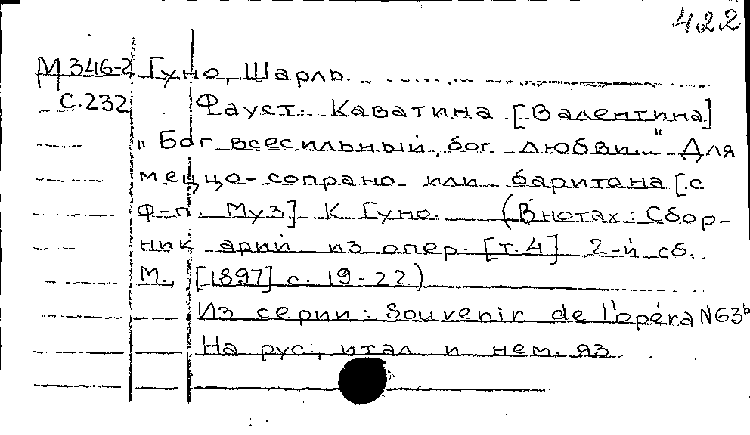 422
М 346-2 Гуно, Шарль.
С.232 Фауст. Каватина [Валентина]
„Бог всесильный, бог любви..." Для
меццо-сопрано или баритона [с
ф-п. Муз] К Гуно. (В нотах: Сбор-
ник арий из опер. [т.4] 2-й сб.
М., [1897] с. 19-22)
Из серии: Souvenir de l'opéra N63ᵇ
На рус., итал и нем. яз.